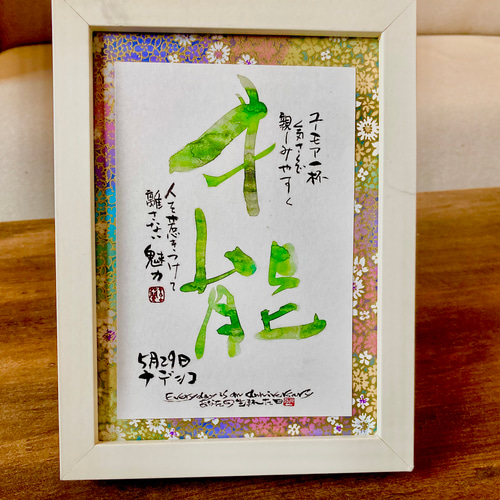 才能
ユーモア一杯
気さくで
親しみやすく
人を惹きつけて
離さない魅力
5月29日
ナデシコ
Everyday is an anniversary
あなたの生まれた日